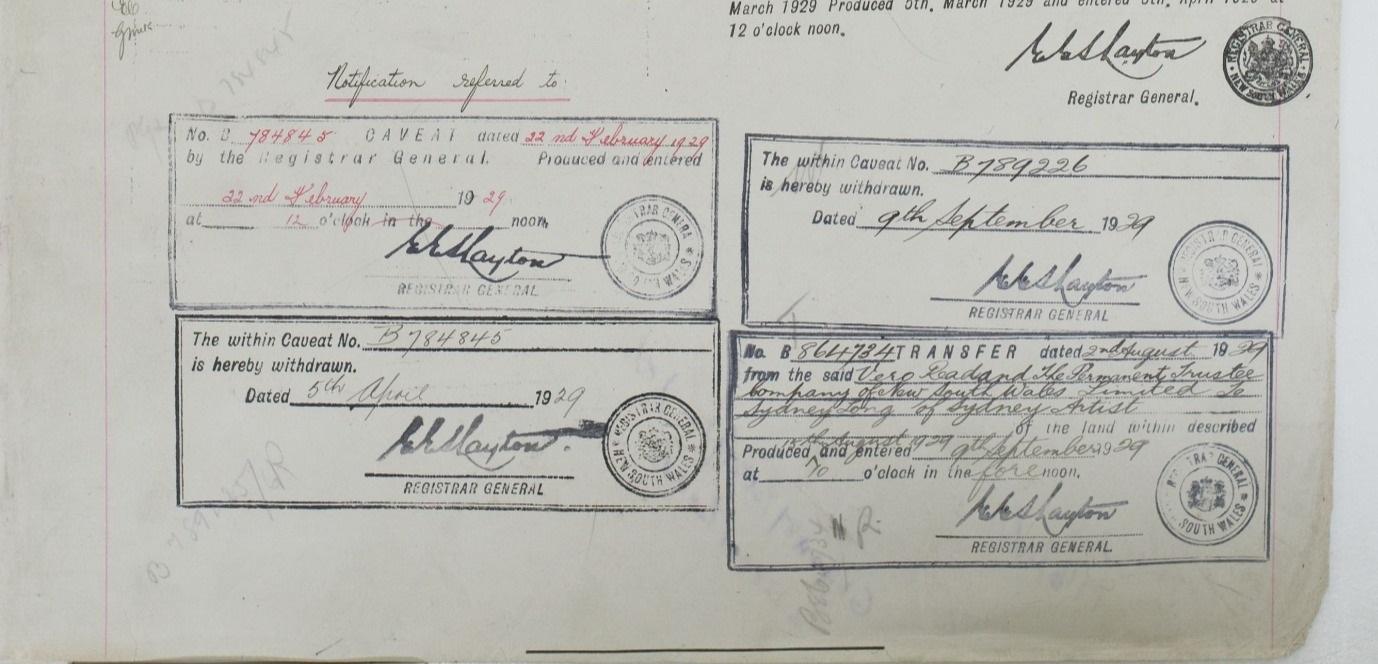 March 1929 Produced 5th. March 1929 and entered 5th. April 1929 at
12 o'clock noon.
Registrar General.
REGISTRAR GENERAL NEW SOUTH WALES
Notification referred to
No. B 784845 CAVEAT dated 22nd February 1929
by the Registrar General. Produced and entered
22nd February 1929
at 12 o'clock in the noon.
REGISTRAR GENERAL
The within Caveat No. B 784845
is hereby withdrawn.
Dated 5th April 1929
REGISTRAR GENERAL
REGISTRAR GENERAL NEW SOUTH WALES
The within Caveat No. B 789226
is hereby withdrawn.
Dated 9th September 1929
REGISTRAR GENERAL
REGISTRAR GENERAL NEW SOUTH WALES
No. B 864734 TRANSFER dated 2nd August 1929
from the said Vero Read and The Permanent Trustee
Company of New South Wales Limited to
Sydney Long of Sydney Artist
of the land within described
Produced 15th August 1929 and entered 9th September 1929
at 10 o'clock in the forenoon.
REGISTRAR GENERAL.